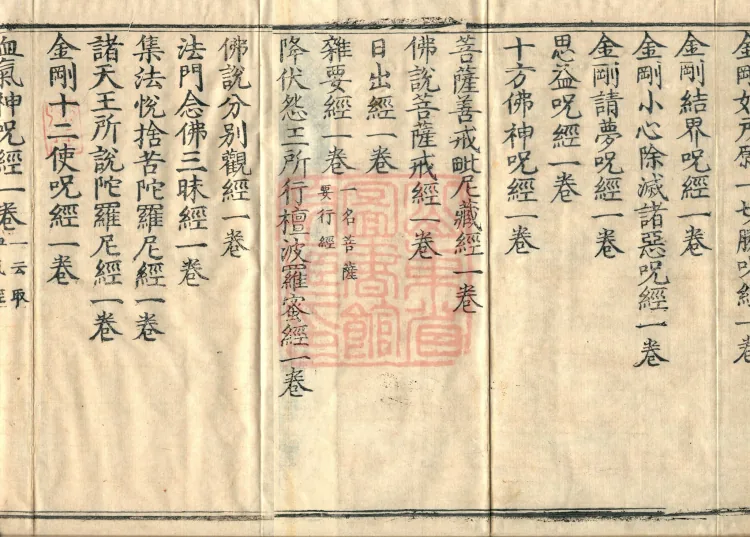 金剛女万願一切勝呪經一卷
金剛結界呪經一卷
金剛小心除滅諸惡呪經一卷
金剛請夢呪經一卷
思益呪經一卷
十方佛神呪經一卷
菩薩善戒毗尼藏經一卷
佛說菩薩戒經一卷
日出經一卷
雜要經一卷 一名菩薩要行經
降伏怨王所行檀波羅蜜經一卷
佛說分別觀經一卷
法門念佛三昧經一卷
集法悅捨苦陀羅尼經一卷
諸天王所說陀羅尼經一卷
金剛十二使呪經一卷
血氣神呪經一卷 一云取